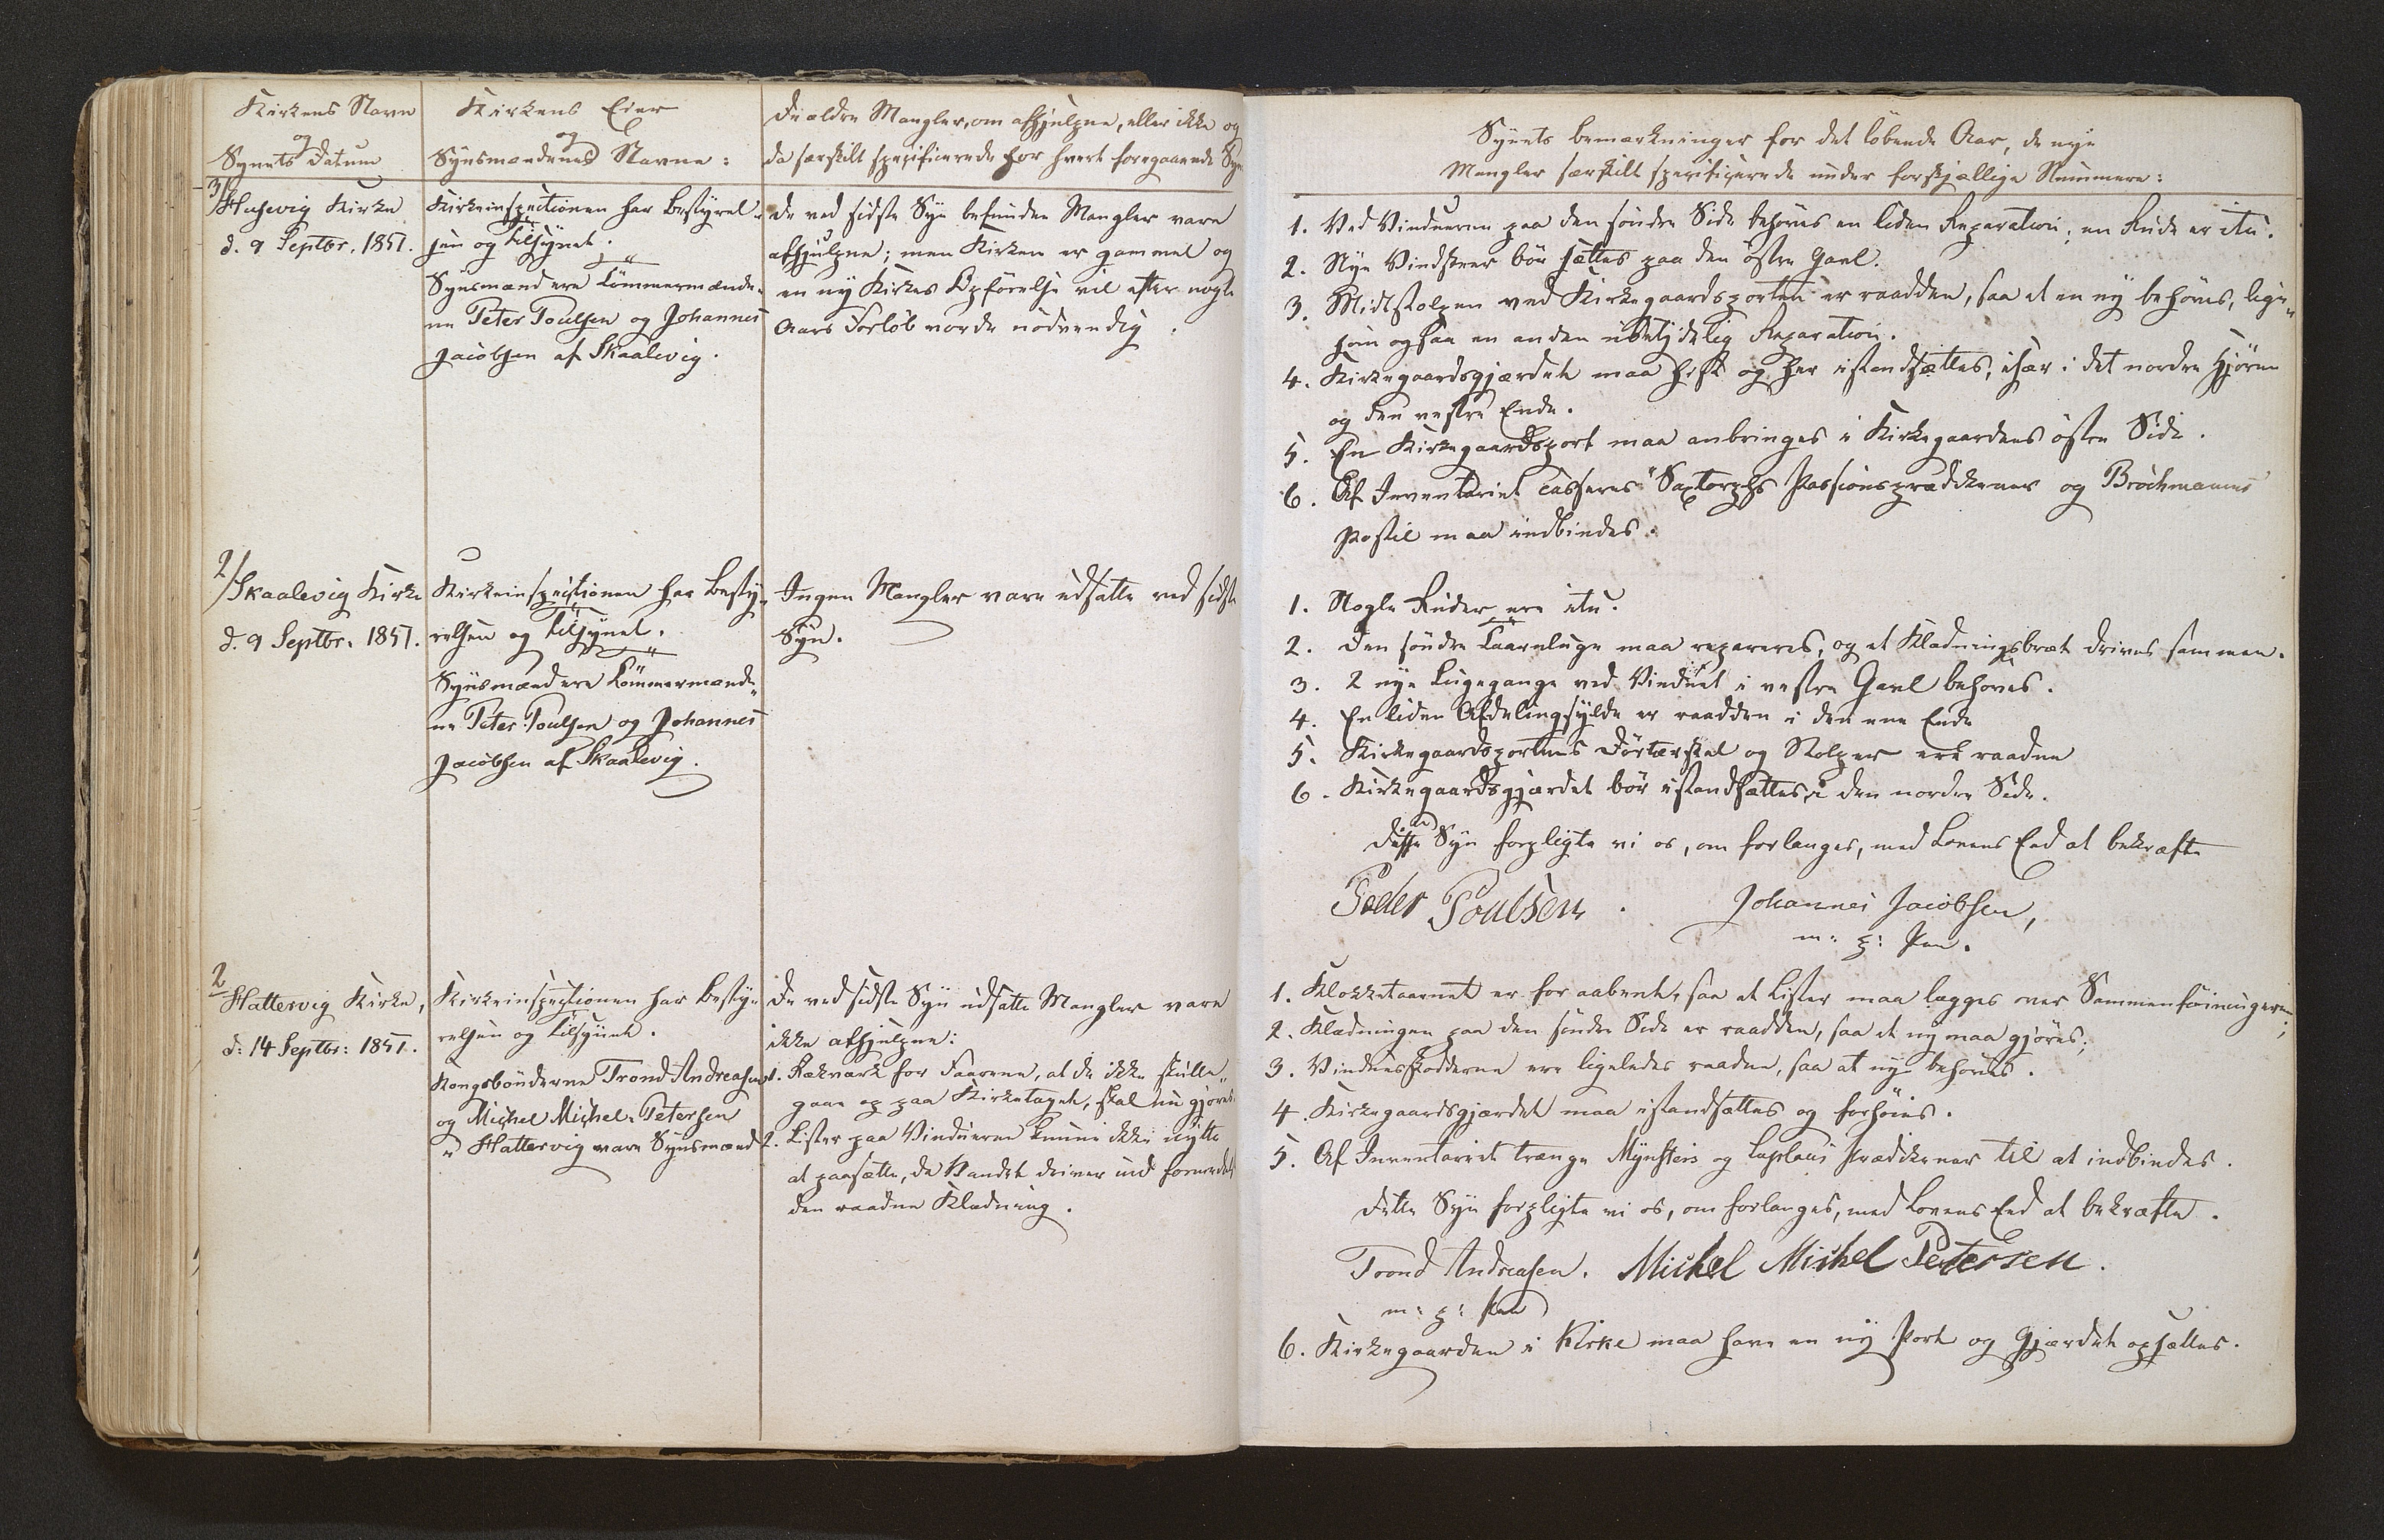 Kirkens Navn
og
Synets Datum
Kirkens Eier
og
Synsmændenes Navne:
De ældre Mangler, om afhjulpne, eller ikke og
da særskilt specificerede for hvert foregaaende Syn
3/
Husevig Kirke
d. 9 Septbr. 1851.
Kirkeinspectionen har Bestyrel-
sen og Tilsynet.
Synsmænd ere Tömmermænde-
ne Peter Poulsen og Johannes
Jacobsen af Skaalevig.
De ved sidste Syn befundne Mangler vare
afhjulpne; men Kirken er gammel og
en ny Kirkes Opförelse vil efter nogle
Aars Forløb vorde nödvendig.
2/
Skaalevig Kirke
d. 9 Septbr. 1851.
Kirkeinspectionen har Besty-
relsen og Tilsynet.
Synsmænd ere Tömmermænde-
ne Peter Poulsen og Johannes
Jacobsen af Skaalevig.
Ingen Mangler vare udsatte ved sidste
Syn.
2
Hattervig Kirke,
d: 14 Septbr: 1851.
Kirkeinspectionen har Besty-
relsen og Tilsynet.
Kongsbönderne Trond Andreasen
og Michel Michel-Petersen
i Hattervig vare Synsmænd
De ved sidste Syn udsatte Mangler vare
ikke afhjulpne:
1. Rækværk for Faarene, at de ikke skulle
gaae op paa Kirketaget, skal nu gjöres.
2. Lister paa Vinduerne kunne ikke nytte
at paasætte, da Vandet driver ind formedelst
den raadne Klædning.
Synets bemærkninger for det löbende Aar, de nye
Mangler særskilt specificerede under forskjællige Nummere:
1. Ved Vinduerne paa den söndre Side behöves en liden Reparation; en Rude er itu.
2. Nye Vindskeer bör sættes paa den östre Gavl.
3. Midtstolpen ved Kirkegaardsporten er raadden, saa at en ny behöves, lige-
som ogsaa en anden ubetydelig Reparation.
4. Kirkegaardsgjærdet maa hist og her istandsættes, især i det nordre Hjörne
og den vestre Ende.
5. En Kirkegaardsport maa anbringes i Kirkegaardens östre Side.
6. Af Inventariet casseres Saxtorphs Passionsprædikener og Brochmanns
Postil maa indbindes.
1. Nogle Ruder ere itu.
2. Den söndre Taarnluge maa repareres, og et Klædningsbræt drives sammen.
3. 2 nye Lugegange ved Vinduet i vestre Gavl behoves.
4. En liden Afdelingsylde er raadden i den ene Ende
5. Kirkegaardsportens Dörtærskel og Stolper ere raadne
6. Kirkegaardsgjærdet bör istandsættes i den nordre Side.
Disse Syn forpligte vi os, om forlanges, med Lovens Eed at bekræfte
Peder Poulsen. Johannes Jacobsen,
m: p: Pen.
1. Klokketaarnet er for aabent, saa at Lister maa lægges over Sammenföiningerne;
2. Klædningen paa den söndre Side er raadden, saa at ny maa gjöres;
3. Vinduesskodderne ere ligeledes raadne, saa at nye behöves.
4. Kirkegaardsgjærdet maa istandsættes og forhöies.
5. Af Inventariet trænge Mynsters og Laplaus Prædikener til at indbindes.
Dette Syn forpligte vi os, om forlanges, med Lovens Eed at bekræfte.
Trond Andreasen. Michel Michel Petersen.
m: p: Pen
6. Kirkegaarden i Kirke maa have en ny Port og Gjærdet opsættes.